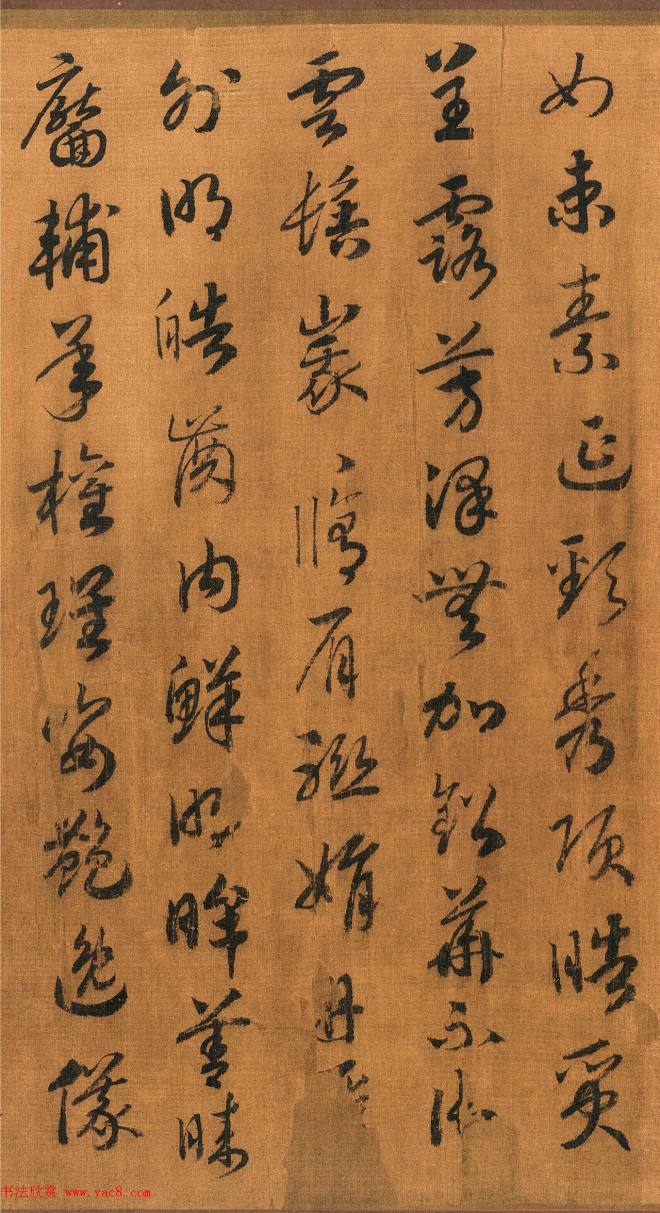 如束素延頸秀項皓質
呈露芳澤無加鉛華不御
雲髻峩〻脩眉聯娟丹唇
外朗皓齒內鮮明眸善睞
靨輔承權瓌姿艷逸儀
书法欣赏 www.yac8.com